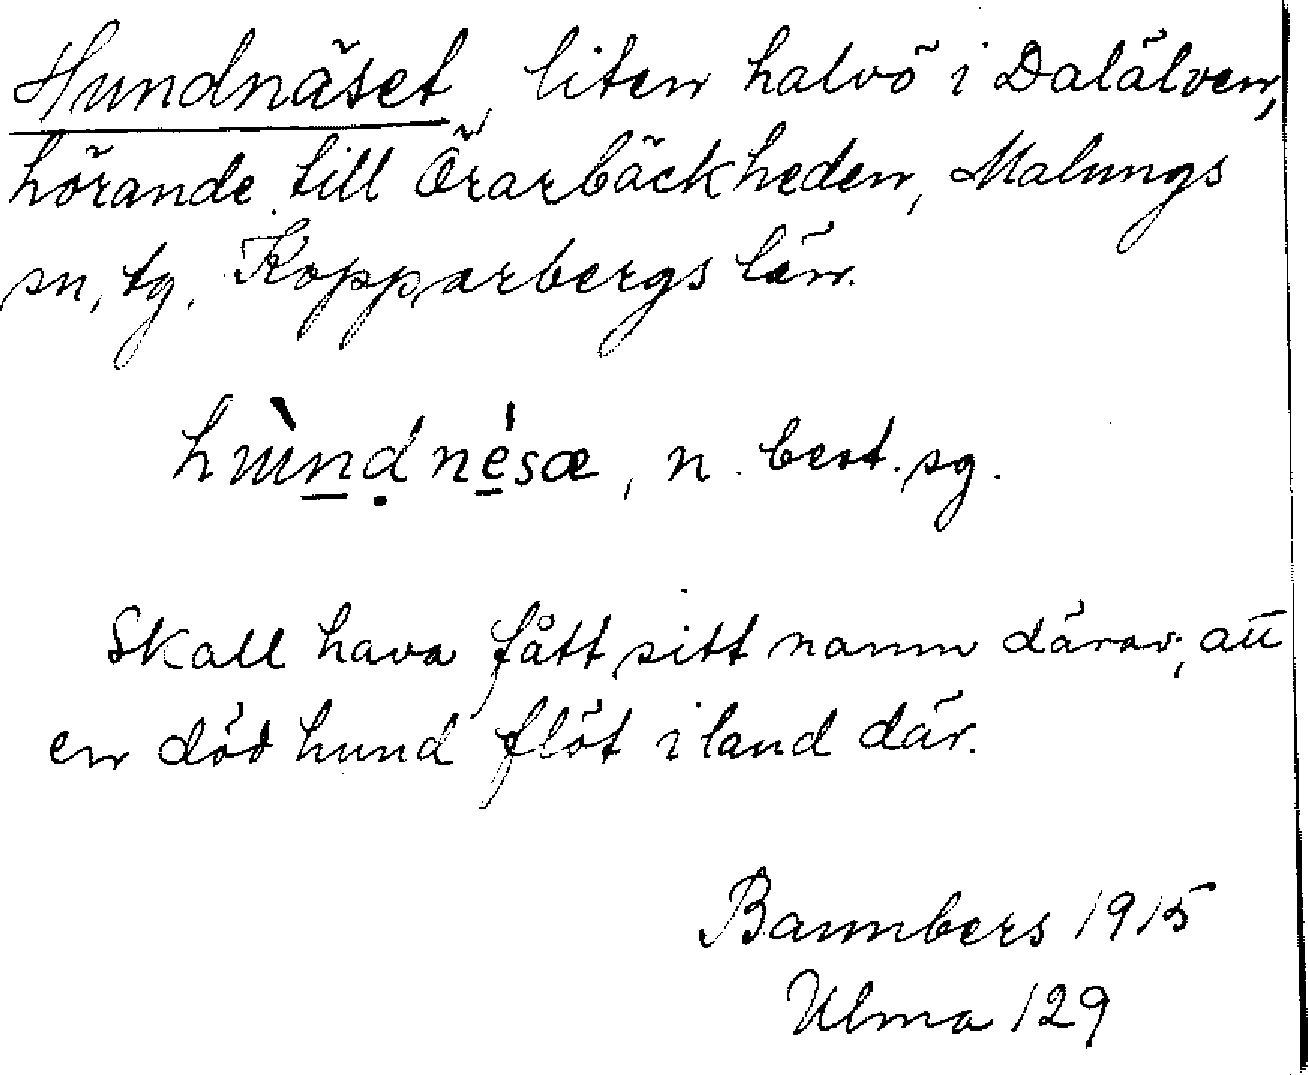 Hundnäset, liten halvö i Dalälven,
hörande till Örarbäckheden, Malungs
sn, tg, Kopparbergs län.
n. best. sg.
Skall hava fått sitt namn därav, att
en död hund flöt i land där.
Bannbers 1915
Ulma 129